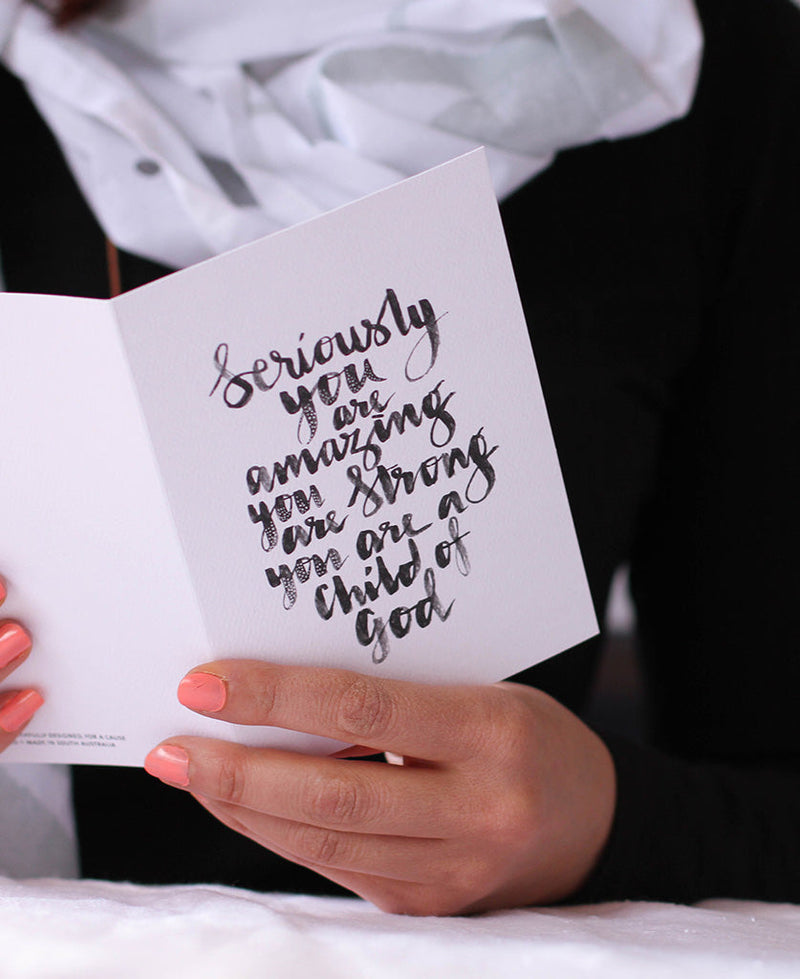 Seriously
you
are
amazing
you strong
are
you are a
child of
god
DESIGNED, FOR A CAUSE
MADE IN SOUTH AUSTRALIA